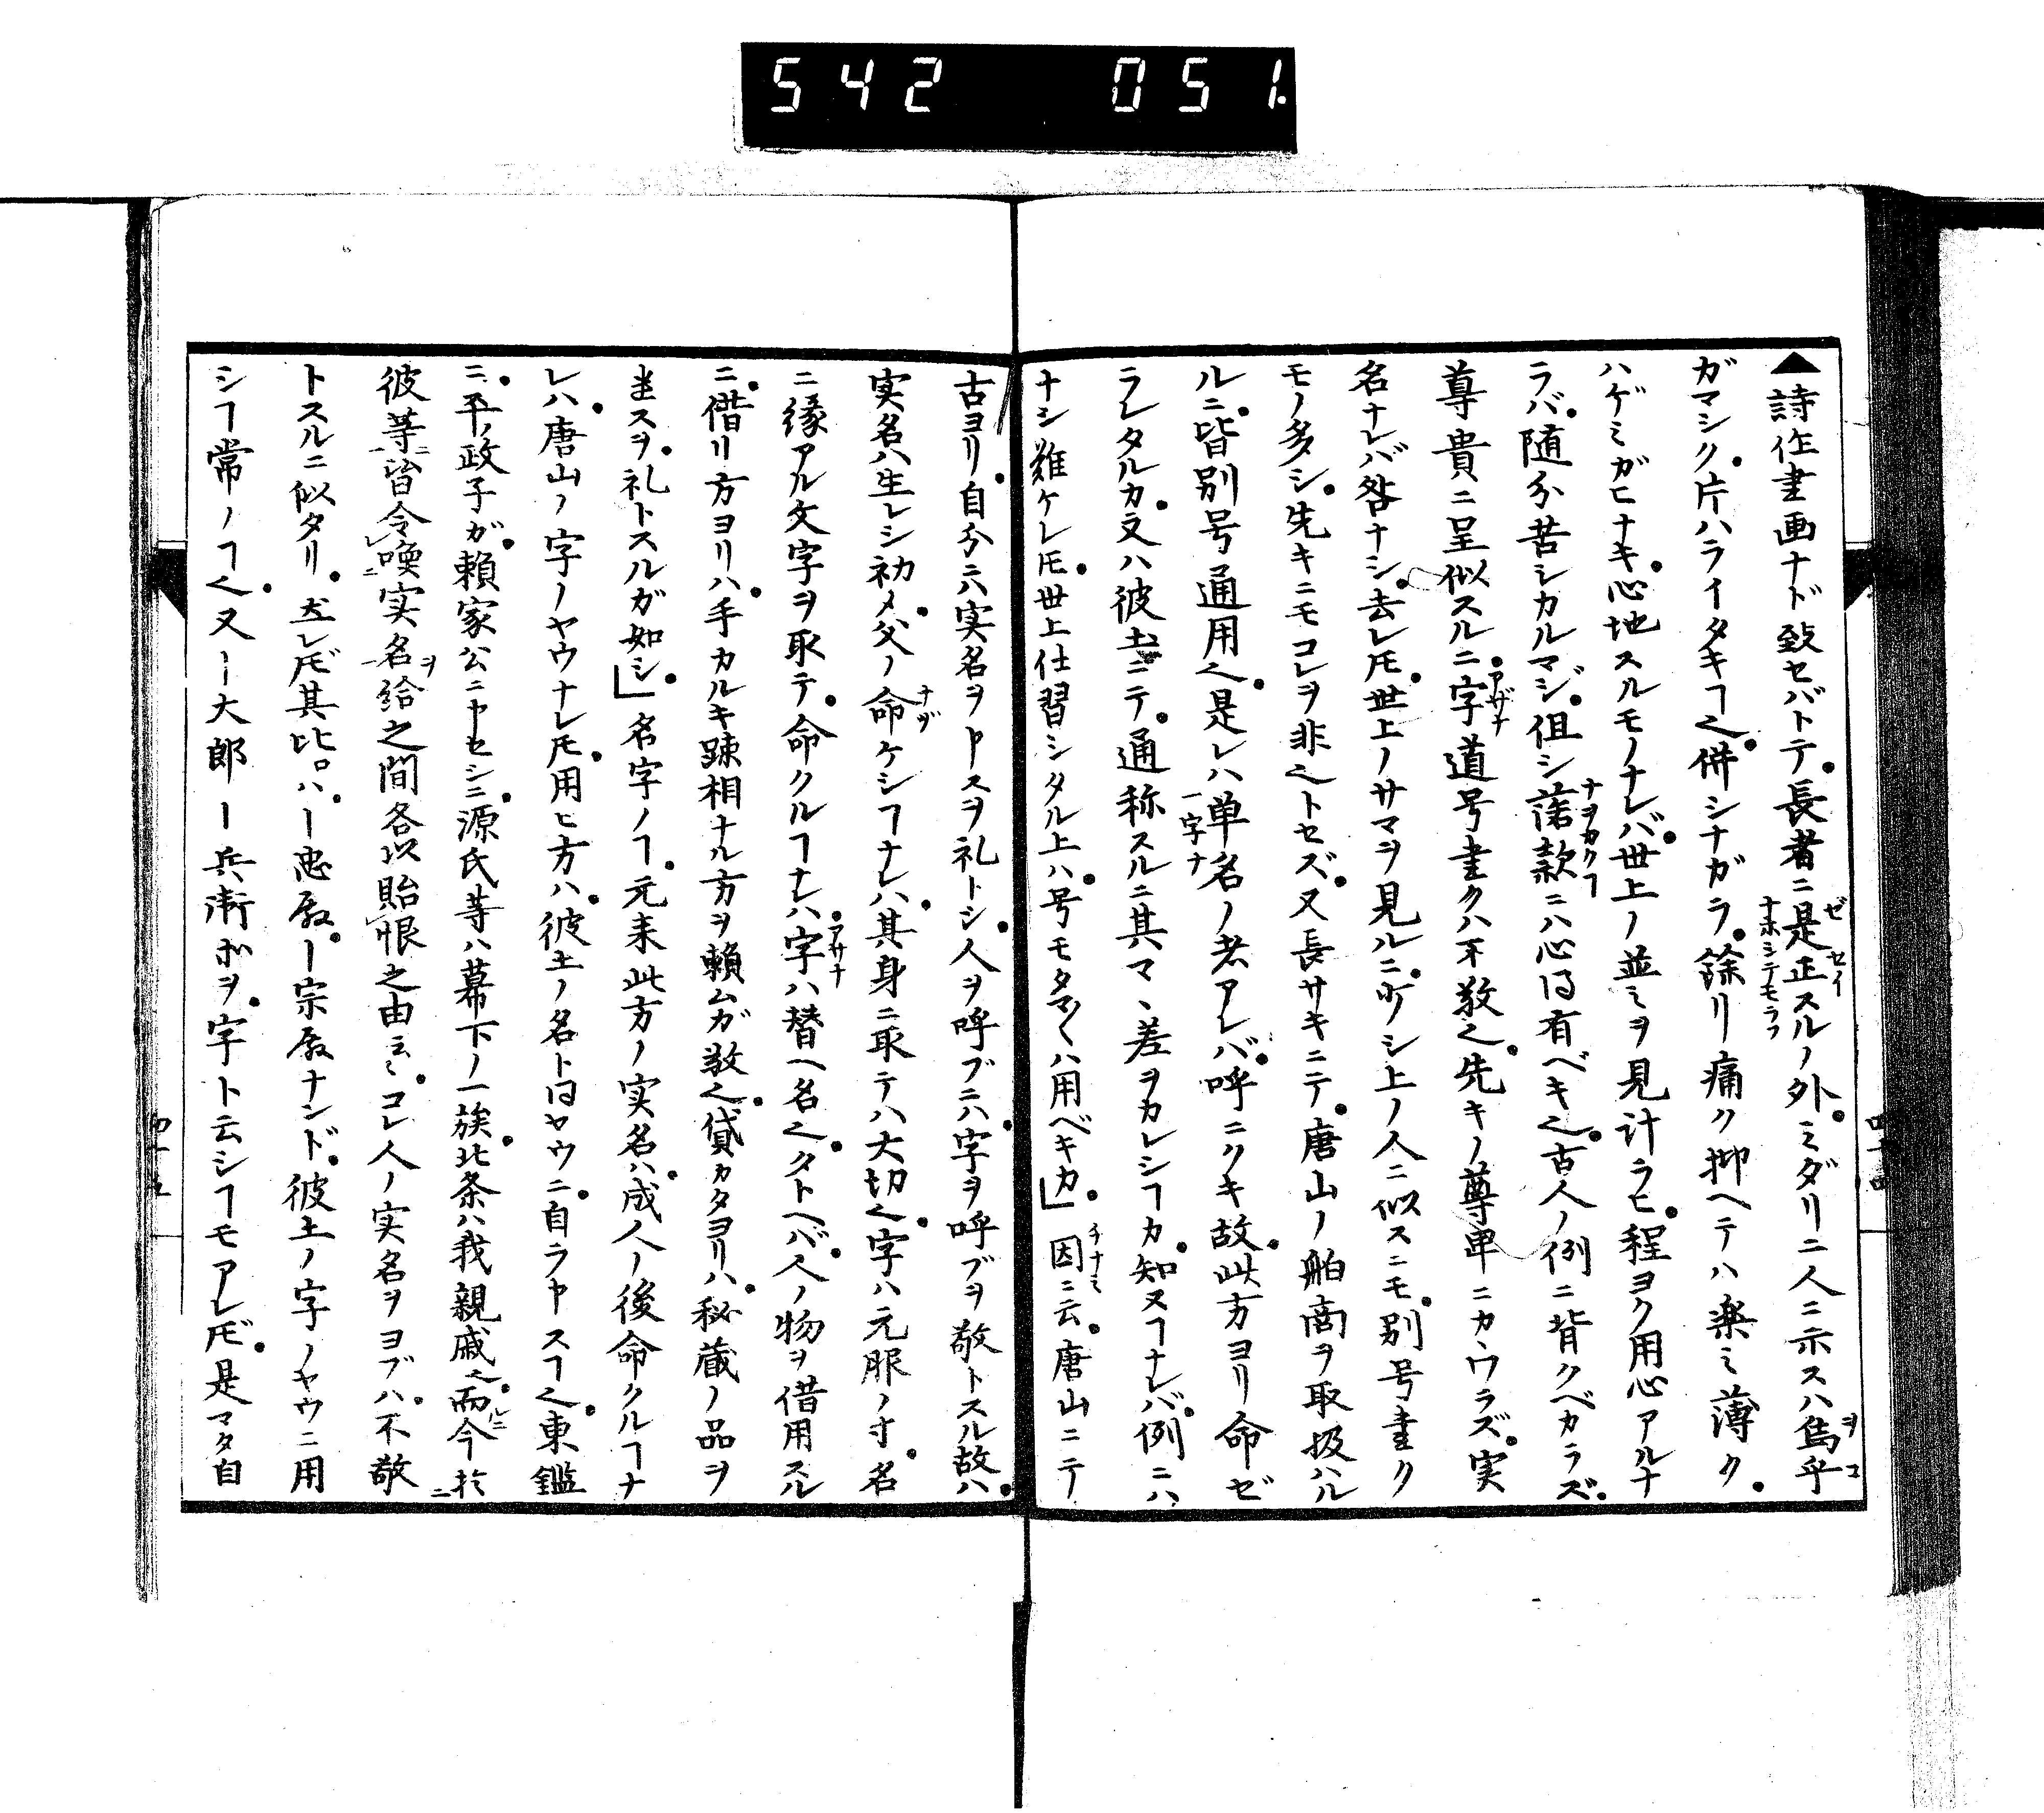 542 051.
▲詩作書画ナド致セバトテ。長者ニ是正スルノ外。ミダリニ人ニ示スハ烏乎
ガマシク。片ハライタキヿ也。併シナガラ。餘リ痛ク抑ヘテハ楽ミ薄ク。
ハゲミガヒナキ心地スルモノナレバ。世上ノ並ミヲ見計ラヒ。程ヨク用心アルナ
ラバ。随分苦シカルマジ。但シ落款ニハ心得有ベキ也。古人ノ例ニ背クベカラズ。
尊貴ニ呈似スルニ。字道号書クハ不敬也。先キノ尊卑ニカヽワラズ。実
名ナレバ咎ナシ。去レ𪜈。世上ノサマヲ見ルニ。少シ上ノ人ニ似スニモ。別号書ク
モノ多シ。先キニモコレヲ非也トセズ。又長サキニテ。唐山ノ舶商ヲ取扱ハル
ルニ。皆別号通用也。是レハ単名ノ者アレバ。呼ニクキ故。此方ヨリ命ゼ
ラレタルカ。又ハ彼土ニテ。通称スルニ其マヽ差ヲカレシヿカ。知ヌヿナレバ。例ニハ
ナシ難ケレ𪜈。世上仕習シタル上ハ。号モタマ〱ハ用ベキカ。」因ニ云。唐山ニテ
古ヨリ。自分ニハ実名ヲ申スヲ礼トシ。人ヲ呼ブニハ。字ヲ呼ブヲ敬トスル故ハ。
実名ハ生レシ初メ。父ノ命ケシヿナレハ。其身ニ取テハ大切也。字ハ元服ノ寸。名
ニ縁アル文字ヲ取テ。命クルヿナレハ。字ハ替ヘ名也。タトヘバ。人ノ物ヲ借用スル
ニ。借リ方ヨリハ。手カルキ踈相ナル方ヲ頼ムガ敬也。貸カタヨリハ。秘蔵ノ品ヲ
出スヲ。礼トスルガ如シ。」名字ノヿ。元来此方ノ実名ハ。成人ノ後命クルヿナ
レハ。唐山ノ字ノヤウナレ𪜈。用ヒ方ハ。彼土ノ名ト同ヤウニ。自ラ申スヿ也。東鑑
ニ。平ノ政子ガ。頼家公ニ申セシニ。源氏等ハ幕下ノ一族。北条ハ我親戚也。而今於
彼等皆令喚実名給之間各以貽恨之由云々。コレ人ノ実名ヲヨブハ。不敬
トスルニ似タリ。左レ𪜈其比ロハ。ー忠殿。ー宗殿ナンド。彼土ノ字ノヤウニ用
シヿ常ノヿ也。又ー大郎ー兵衛ホヲ。字ト云シヿモアレ𪜈。是マタ自
ゼセイ
ナホシテモラフ
ヲコ
ナヲカクヿ
アザナ
一字ナ
チナミ
ナヅ
アザナ